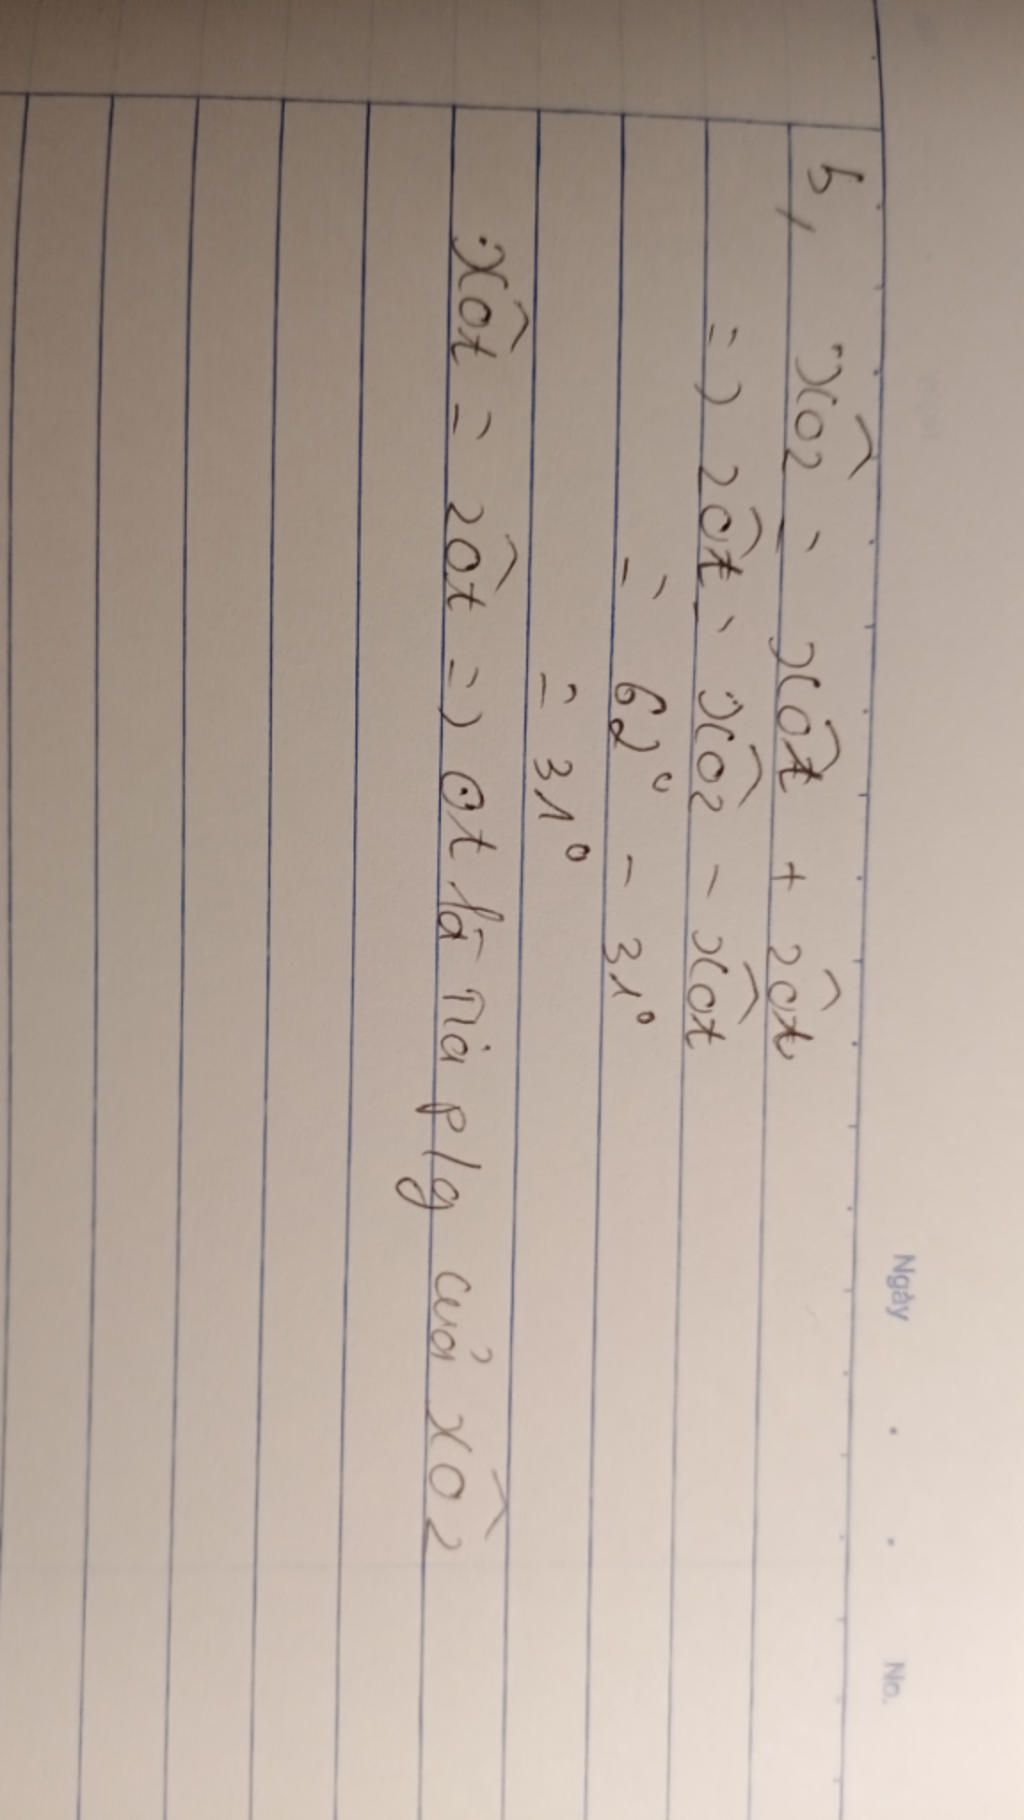 Ngày . . No.
b, xôz = xôt + zôt
=) zôt = xôz - xôt
= 62° - 31°
= 31°
xôt = zôt =) ot là tia p/g của xôz